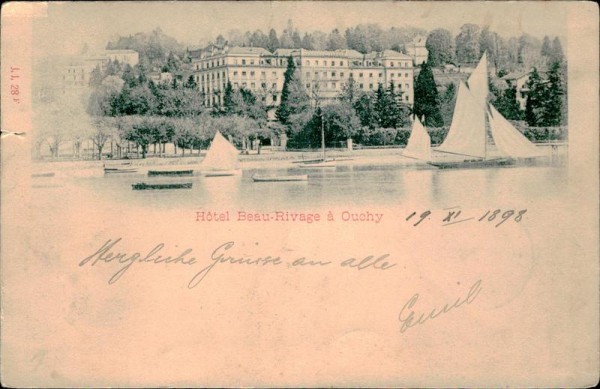 J. J. 28 F
Hôtel Beau-Rivage à Ouchy
19. XI 1898
Herzliche Grüsse an alle.
Emil